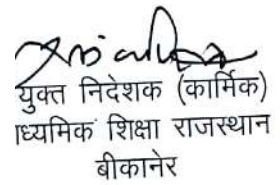 युक्त निदेशक (कार्मिक)
ाध्यमिक शिक्षा राजस्थान
बीकानेर